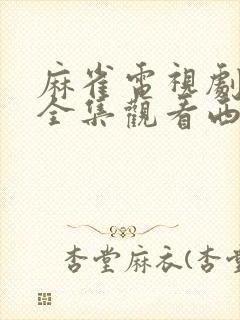 麻雀電視劇
全集觀看西
杏堂麻衣(杏堂